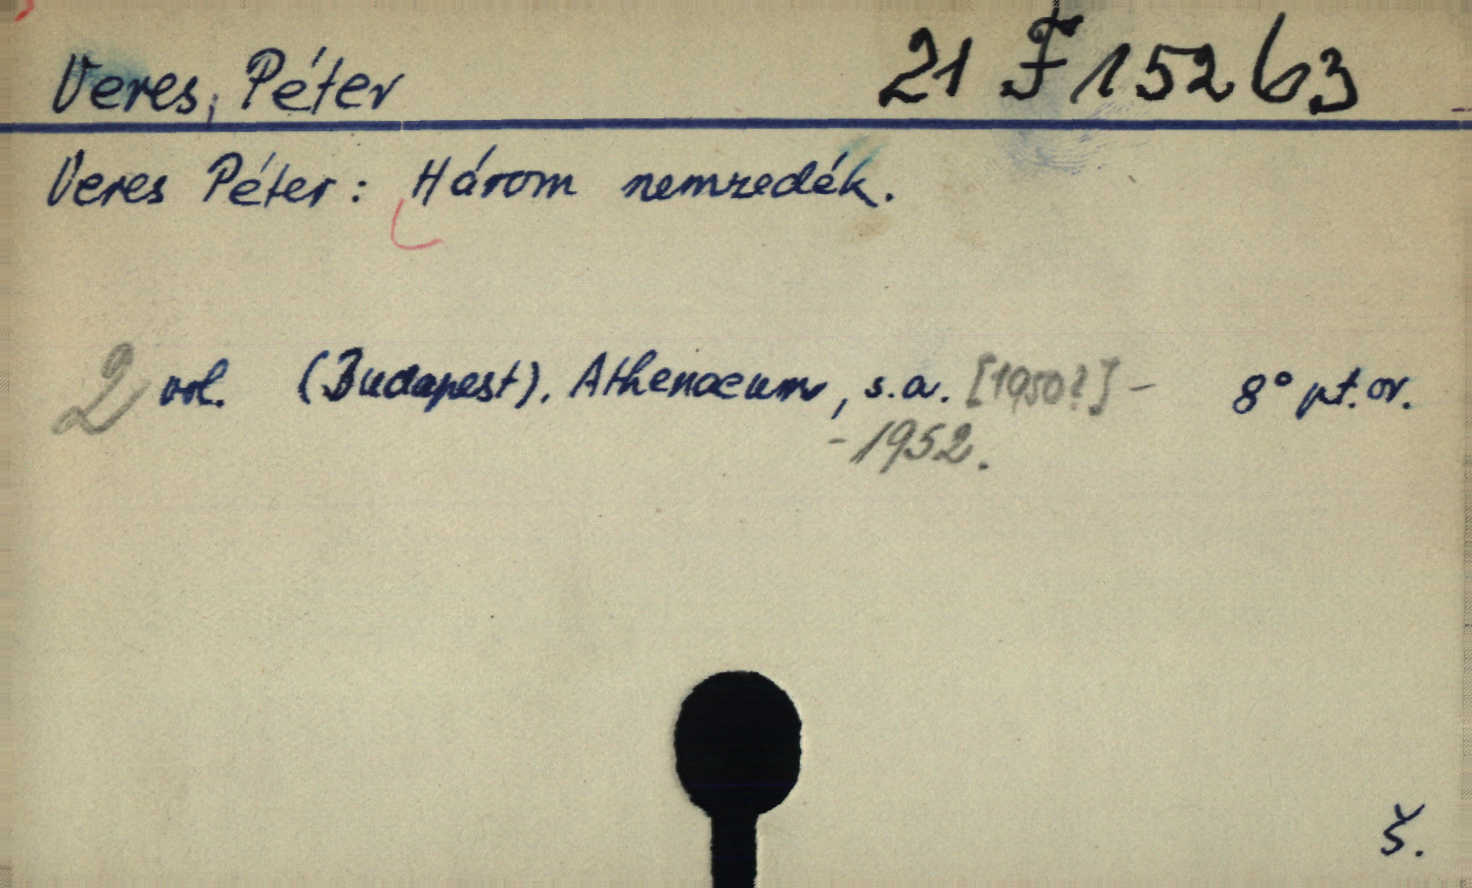 Veres, Péter 21 F 15263
Veres Péter: Három nemzedék.
2 vol. (Budapest), Athenaeum, s.a. [1950?] - 8° pt. or.
- 1952.
Š.